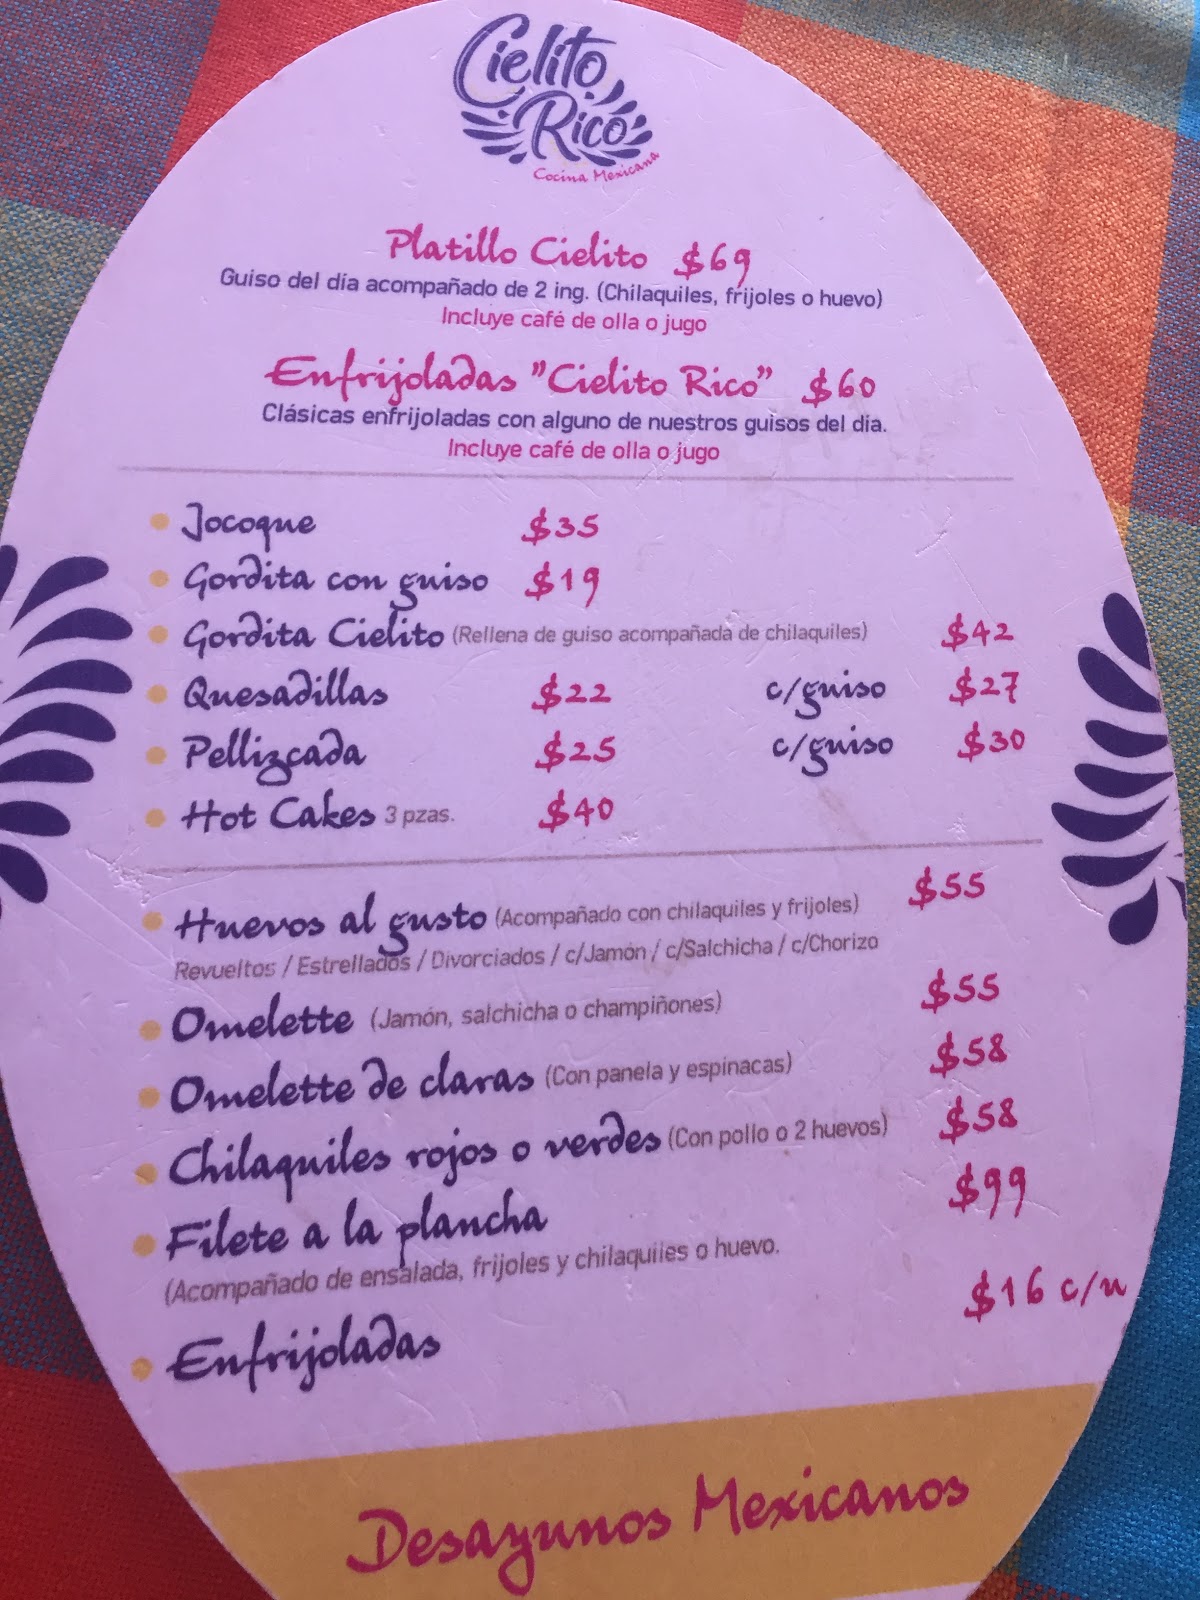 Cielito
Rico
Cocina Mexicana
Platillo Cielito $69
Guiso del día acompañado de 2 ing. (Chilaquiles, frijoles o huevo)
Incluye café de olla o jugo
Enfrijoladas "Cielito Rico" $60
Clásicas enfrijoladas con alguno de nuestros guisos del día.
Incluye café de olla o jugo
Jocoque $35
Gordita con guiso $19
Gordita Cielito (Rellena de guiso acompañada de chilaquiles) $42
Quesadillas $22 c/guiso $27
Pellizcada $25 c/guiso $30
Hot Cakes 3 pzas. $40
Huevos al gusto (Acompañado con chilaquiles y frijoles) $55
Revueltos / Estrellados / Divorciados / c/Jamón / c/Salchicha / c/Chorizo
Omelette (Jamón, salchicha o champiñones) $55
Omelette de claras (Con panela y espinacas) $58
Chilaquiles rojos o verdes (Con pollo o 2 huevos) $58
Filete a la plancha $99
(Acompañado de ensalada, frijoles y chilaquiles o huevo.
Enfrijoladas $16 c/u
Desayunos Mexicanos